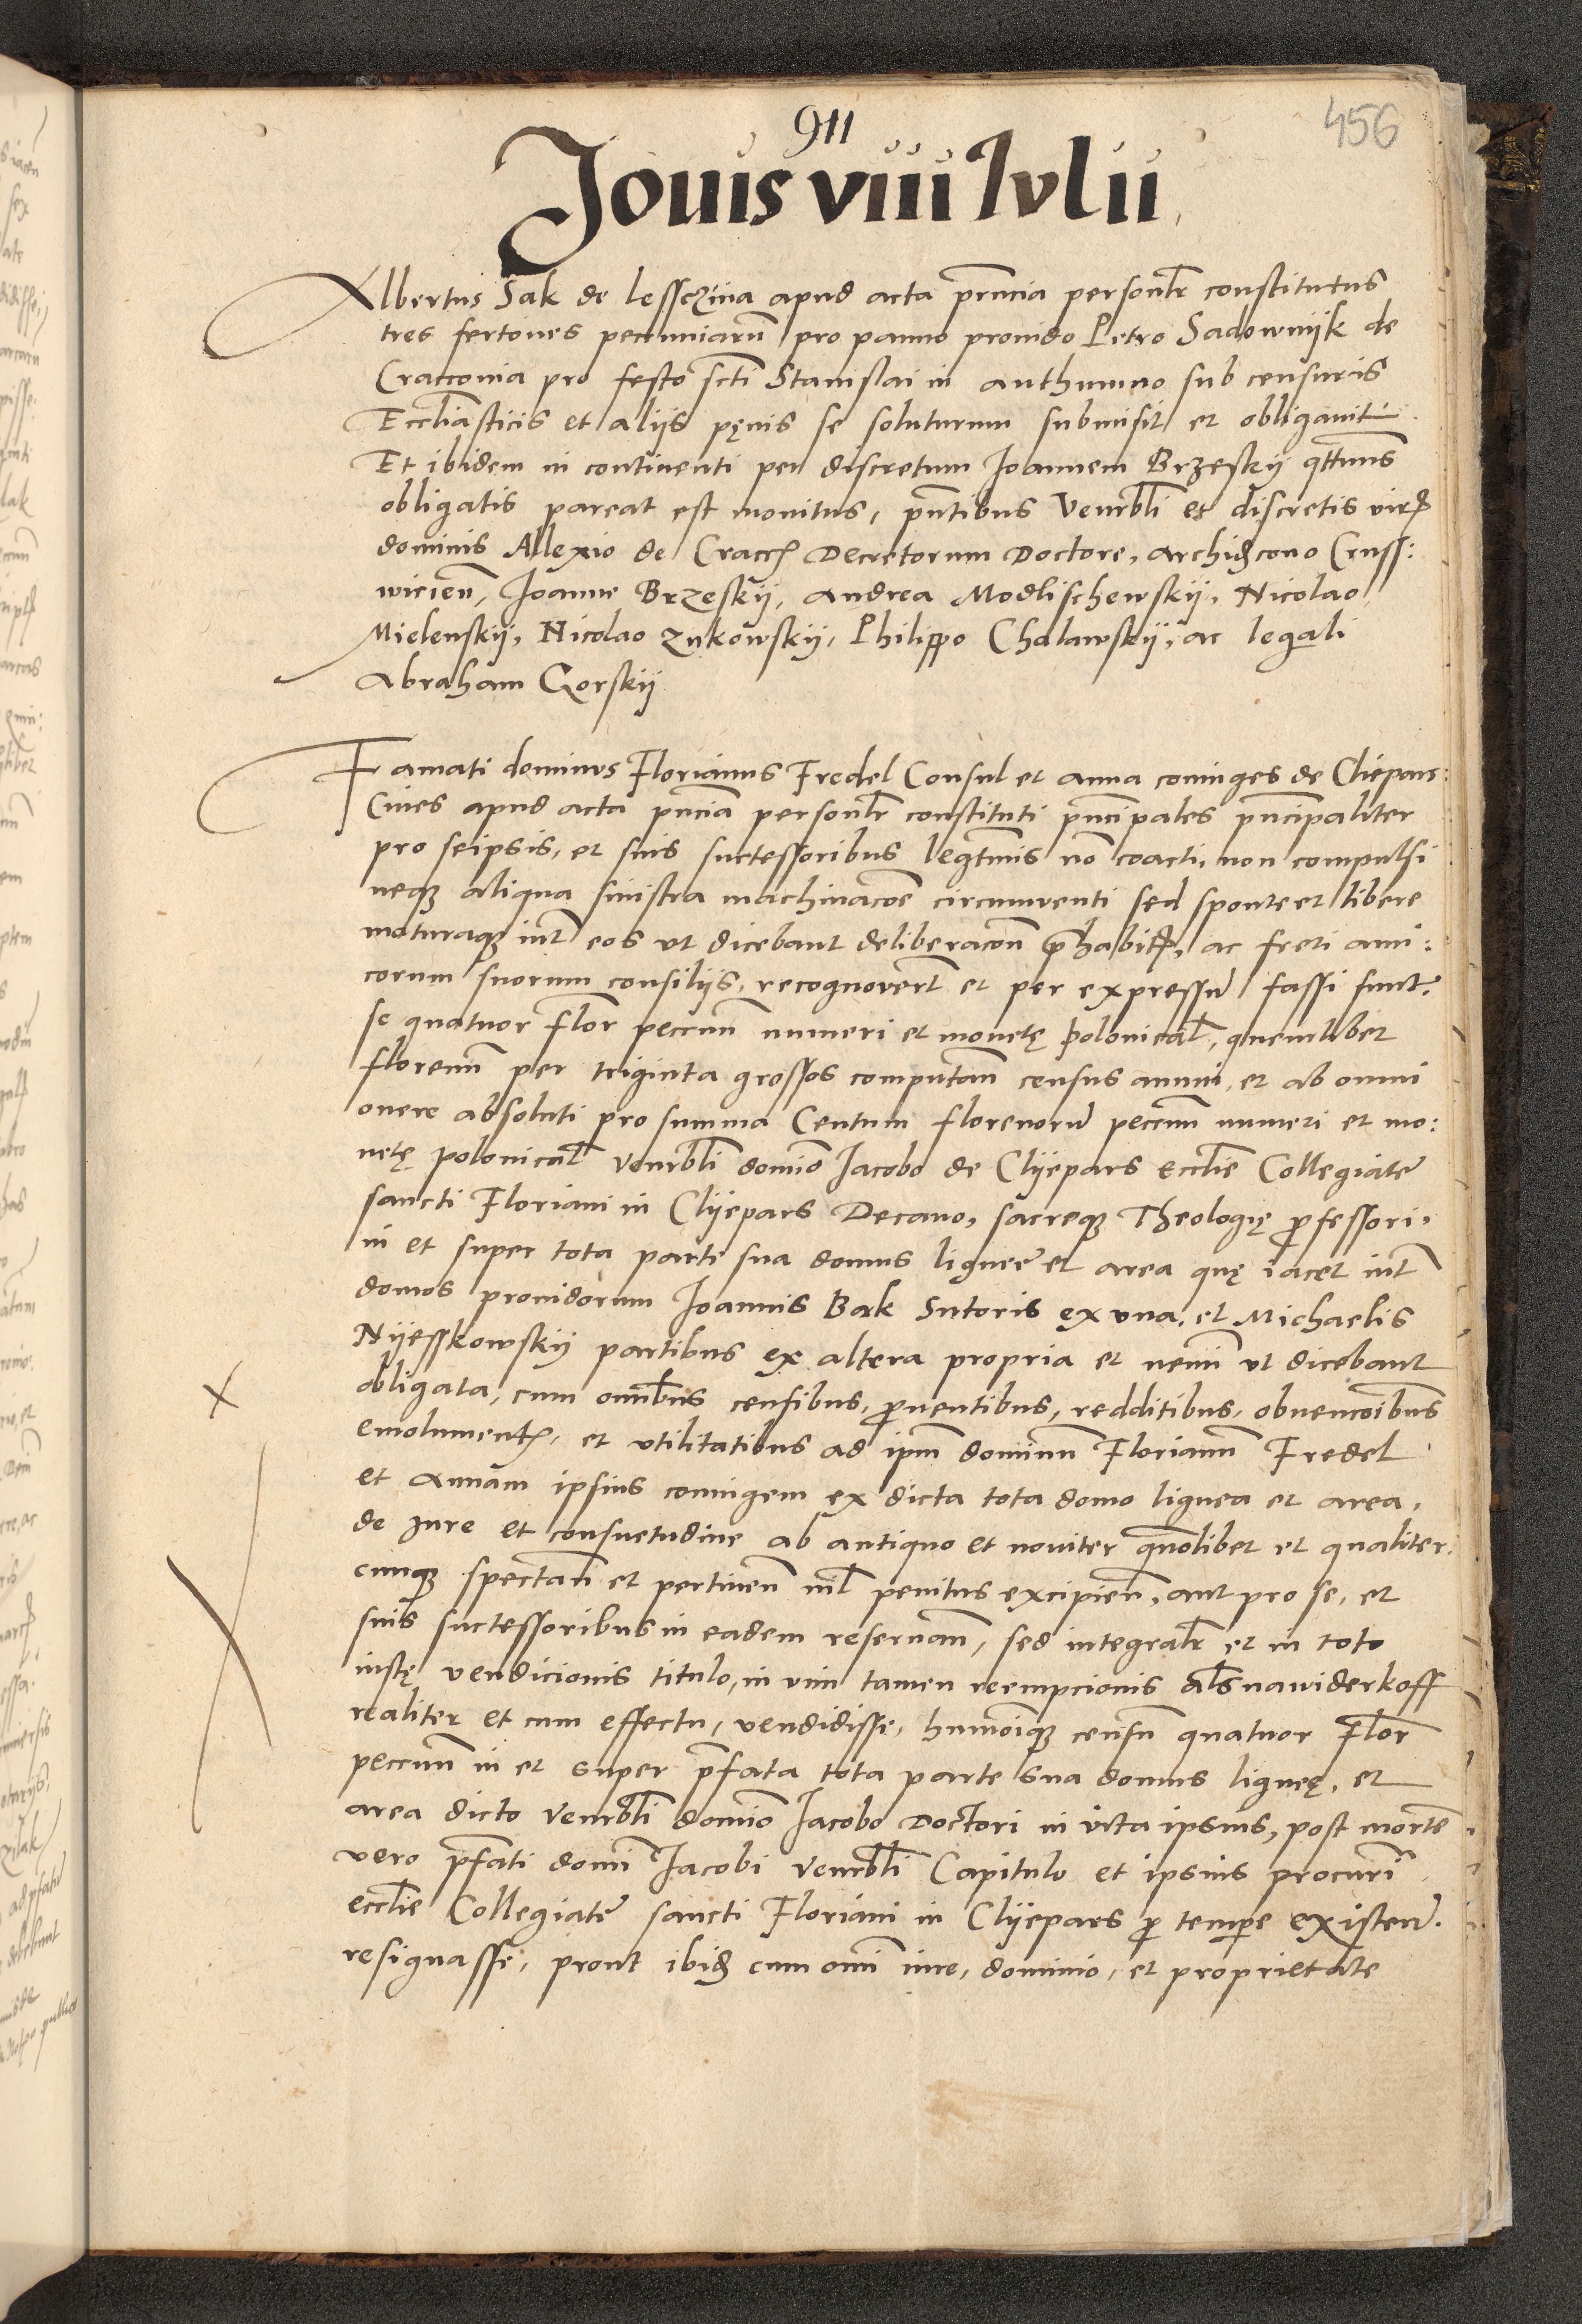 911
456
Jouis viii Iulii
Albertus Sak de Lessczina apud acta prncia personlr constitutus
tres fertones pecuniarũ pro panno prouido Petro Sadownijk de
Cracouia pro festo scti Stanislai in authumno sub censuris
Eccliasticis et aliis pęnis se soluturum submisit et obligauit
Et ibidem in continenti per discretum Ioannem Brzeskij qttenus
obligatis pareat est monitus, pntibus Venerbli et discretis viris
dominis Allexio de Cracc Decretorum Doctore, archidcono Cruss:
wicien, Ioanne Brzeskij, Andrea Modlischewskij, Nicolao
Mielenskij, Nicolao Zukowskij, Philippo Chalawskij, ac legali
Abraham Gorskij
Famati dominus Florianus Fredel Consul et anna coniuges de Cliepars:
Ciues apud acta pncia personlr constituti principales principaliter
pro seipsis, et suis successoribus legttimis nõ coacti, non compulsi
neqz aliqua sinistra machinacõe circumuenti sed sponte et libere
maturaqz int eos vt dicebant deliberacõn prehabita, ac freti ami:
corum suorum consiliis, recognouert et per expressũ fassi sunt
se quatuor flor peccun numeri et monetę polonical, quemlibet
florenũ per triginta grossos computan census annui, et ab omni
onere absoluti pro summa Centum florenorũ peccun numeri et mo:
netę polonical Venerbli domio Iacobo de Clijepars ecclie Collegiate
sancti Floriani in Clijepars Decano, sacreqz Theologię professori,
in et super tota parte sua domus lignee et area quę iacet int
domos prouidorum Ioannis Bak Sutoris ex vna, et Michaelis
Nijeskowskij partibus ex altera propria et nemi vt dicebant
obligata, cum omibus censibus, prouentibus, redditibus, obuencoibus
emolument, et vtilitatibus ad ipm dominũ Florianũ Fredel
et Annam ipsius coniugem ex dicta tota domo lignea et area,
de iure et consuetudine ab antiquo et nouiter quolibet et qualiter:
cunqz spectan et pertinen nil penitus excipien, aut pro se, et
suis successoribus in eadem reseruan, sed integralr et in toto
iustę vendicionis titulo, in vim tamen reempcionis als nawiderkoff
realiter et cum effectu, vendidisse, huiusmoiqz censũ quatuor Flor
peccun in et super prefata tota parte sua domus ligneę, et
area dicto Venerbli domio Iacobo Doctori in vita ipsius, post mortē
vero prefati domi Iacobi Venerbli Capitulo et ipsius procuri
ecclie Collegiate sancti Floriani in Clijepars pro tempe existen.
resignasse, prout ibid cum omi iure, dominio, et proprietate